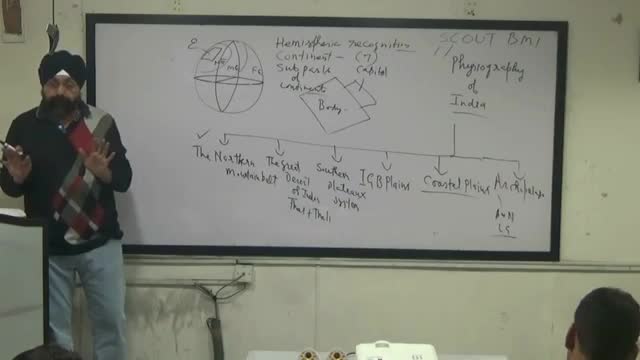 E
Hemispheric recognition
Continent - (7)
Subparts Capital
of
continents
Body
SCOUT BMI
Physiography
of
India
The Northern
mountain belt
The Great
Desert
of India
Thar + Thali
Southern
plateaux
system
IGB Plains
Coastal Plains
Archipelago
A & N
LS